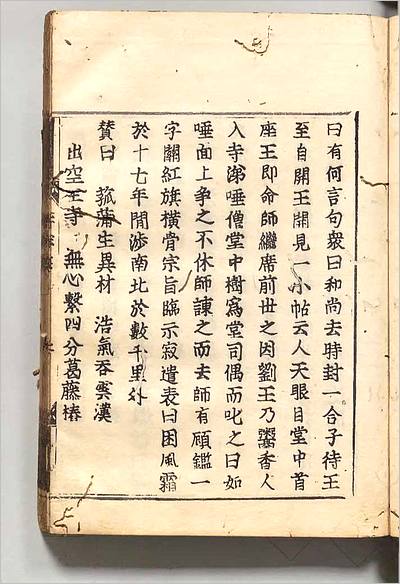 曰有何言句衆曰和尚去時封一合子待王
至自開王開見一小帖云人天眼目堂中首
座王即命師繼席前世之因劉王乃鬻香人
入寺涕唾僧堂中樹爲堂司偶而叱之曰如
唾面上爭之不休師諫之而去師有顧鑑一
字關紅旗橫骨宗旨臨示寂遺表曰困風霜
於十七年間涉南北於數千里外
賛曰 菰蒲生異材 浩氣吞雲漢
出空王寺 無心繫四分葛藤樁